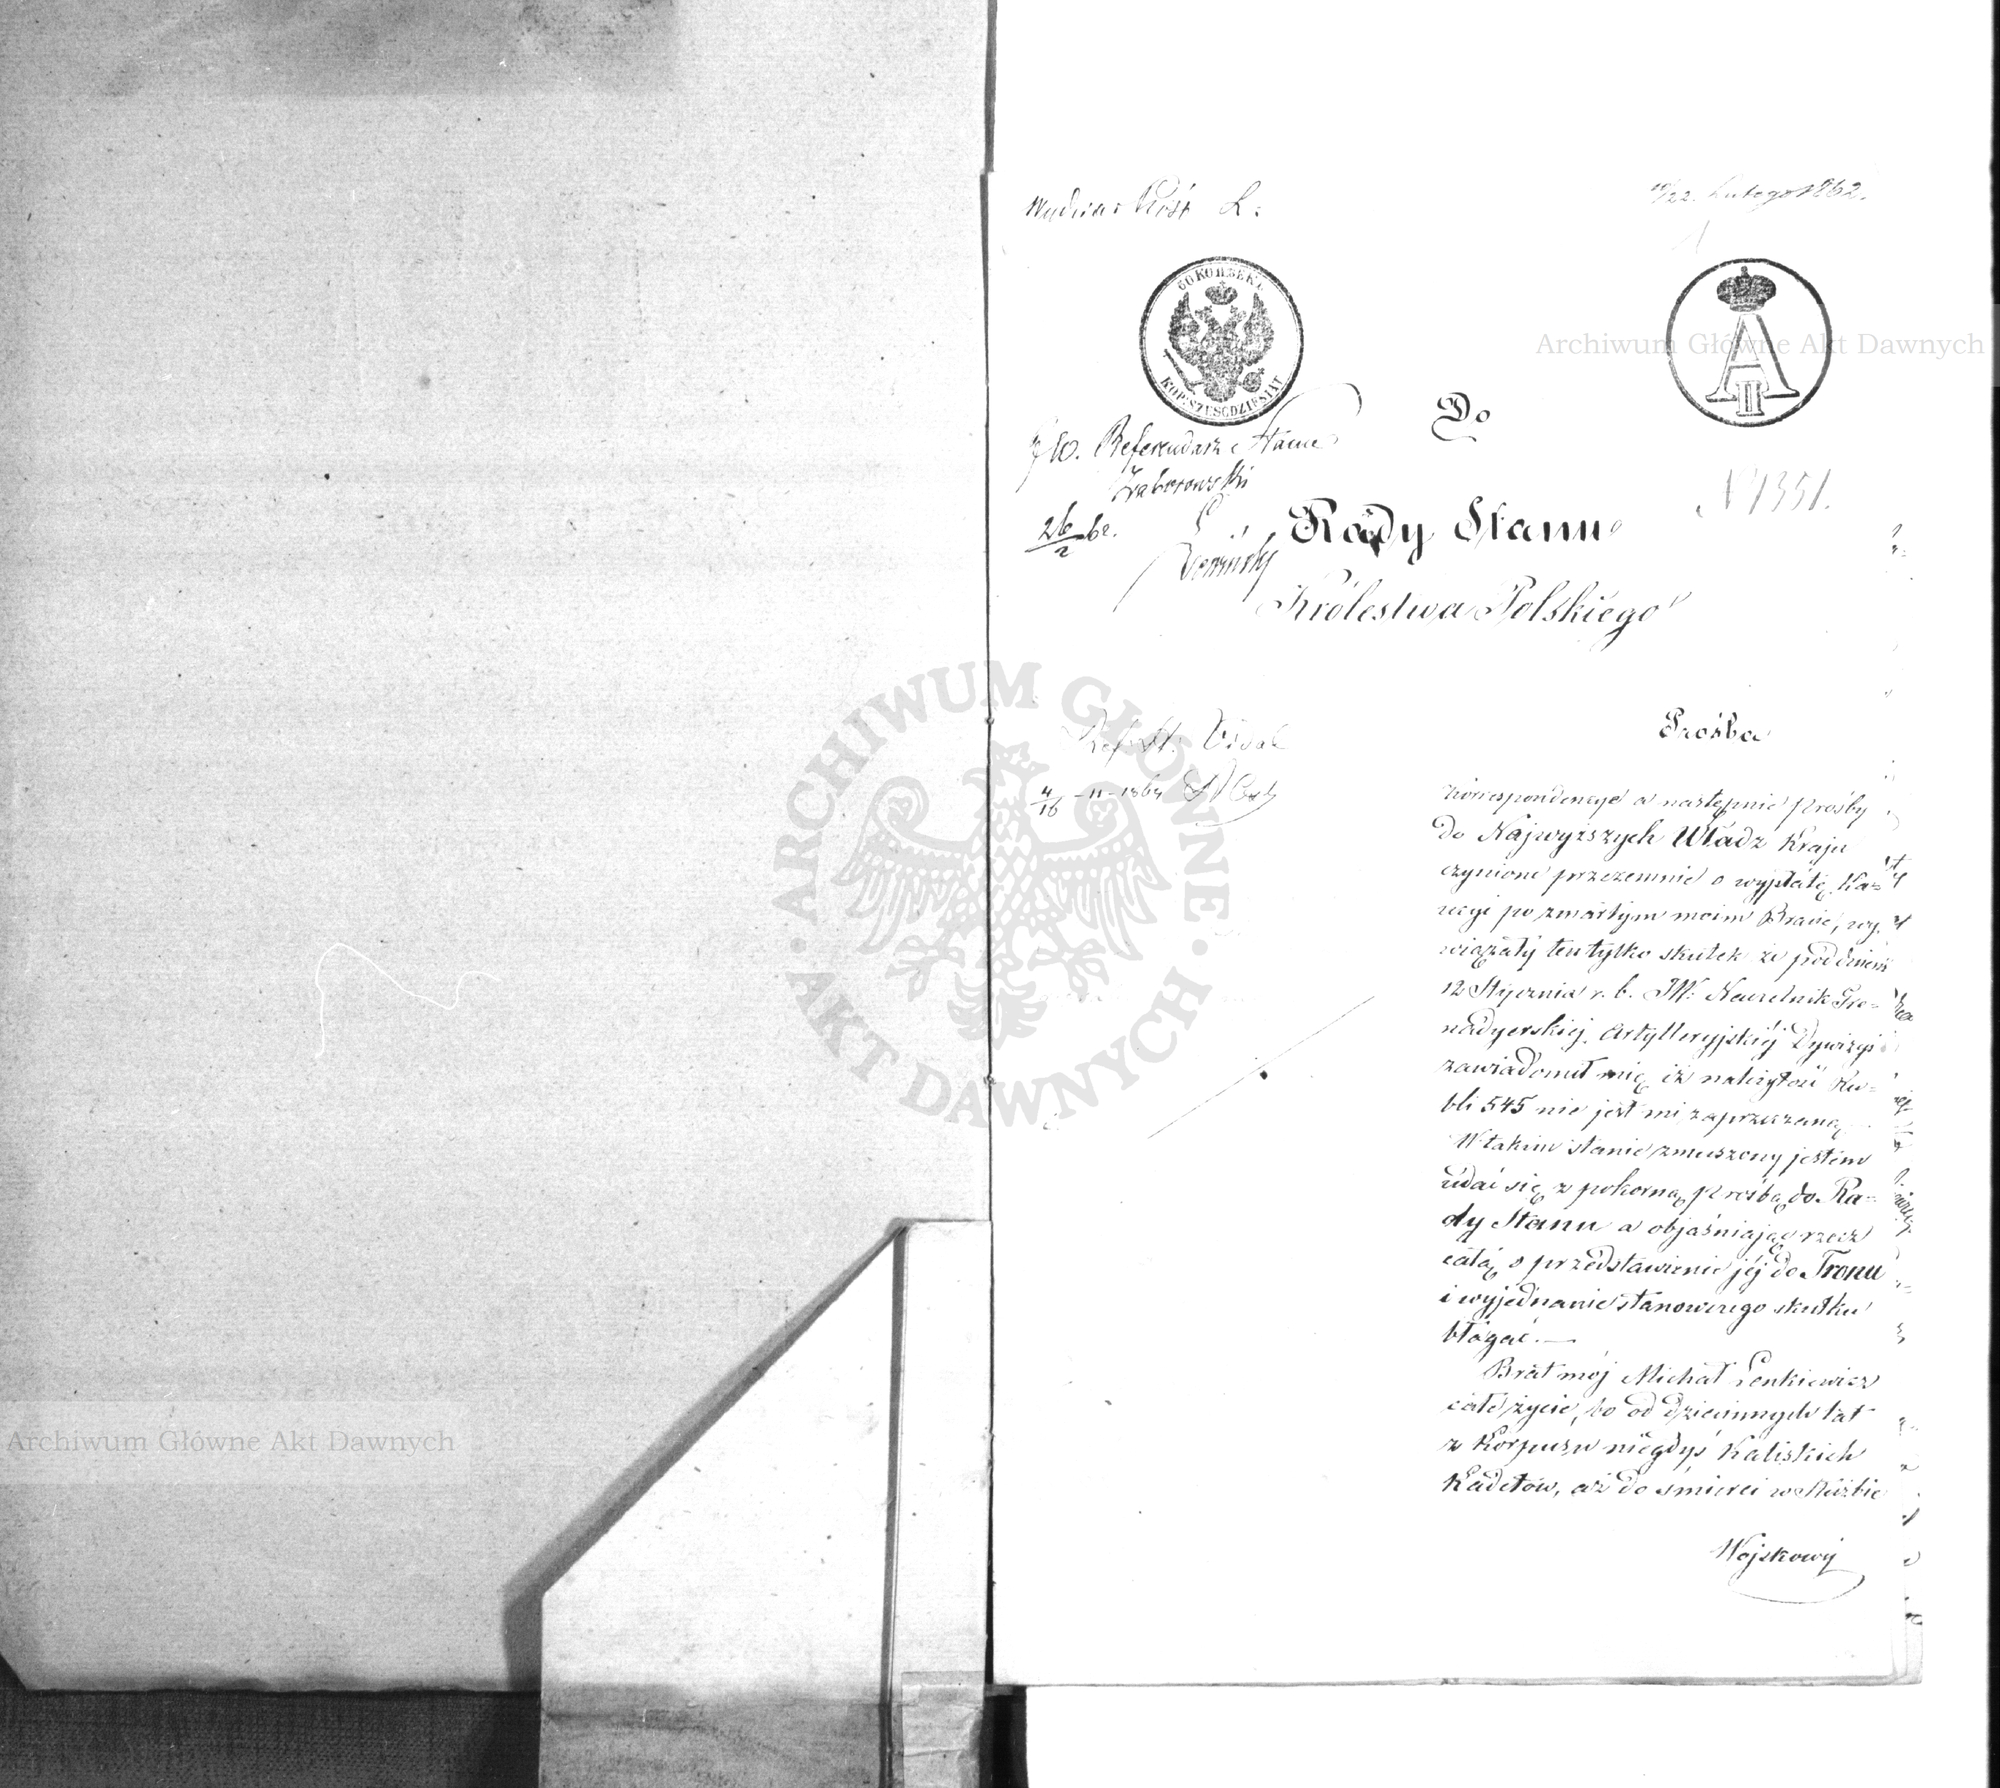 Wydział Próśb L:
10/22. Lutego 1862.
60 КОПѢЕКЪ
KOP: SZEŚĆDZIESIĄT
A II
JW. Referendarz Stanu
Zaborowski
26/2 62.
Do
N 1351.
Rady Stanu
Królestwa Polskiego
Ref. St. Vidal
4/16 -11-1864
Prośba
Korrespondencye a następnie prośby
do Najwyższych Władz Kraju
czynione przezemnie o wypłatę Ka=
ucyi po zmarłym moim Bracie, wy.
wiązały ten tylko skutek że pod dniem
12 Stycznia r. b. JW: Naczelnik Gre=
nadyerskiej Artylleryjskiéj Dywizyi
zawiadomił mię iż należytość Ru=
bli 545 nie jest mi zaprzeczaną
W takim stanie zmuszony jestem
udać się z pokorną prośbą do Ra=
dy Stanu a objaśniając rzecz
całą o przedstawienie jéj do Tronu
i wyjednanie stanowczego skutku
błagać. —
Brat mój Michał Lenkiewicz
całe życie, bo od dziecinnych lat
z Korpusu niegdyś Kaliskich
Kadetów, aż do śmierci w służbie
Wojskowéj
ARCHIWUM GŁÓWNE AKT DAWNYCH
Archiwum Główne Akt Dawnych
Archiwum Główne Akt Dawnych